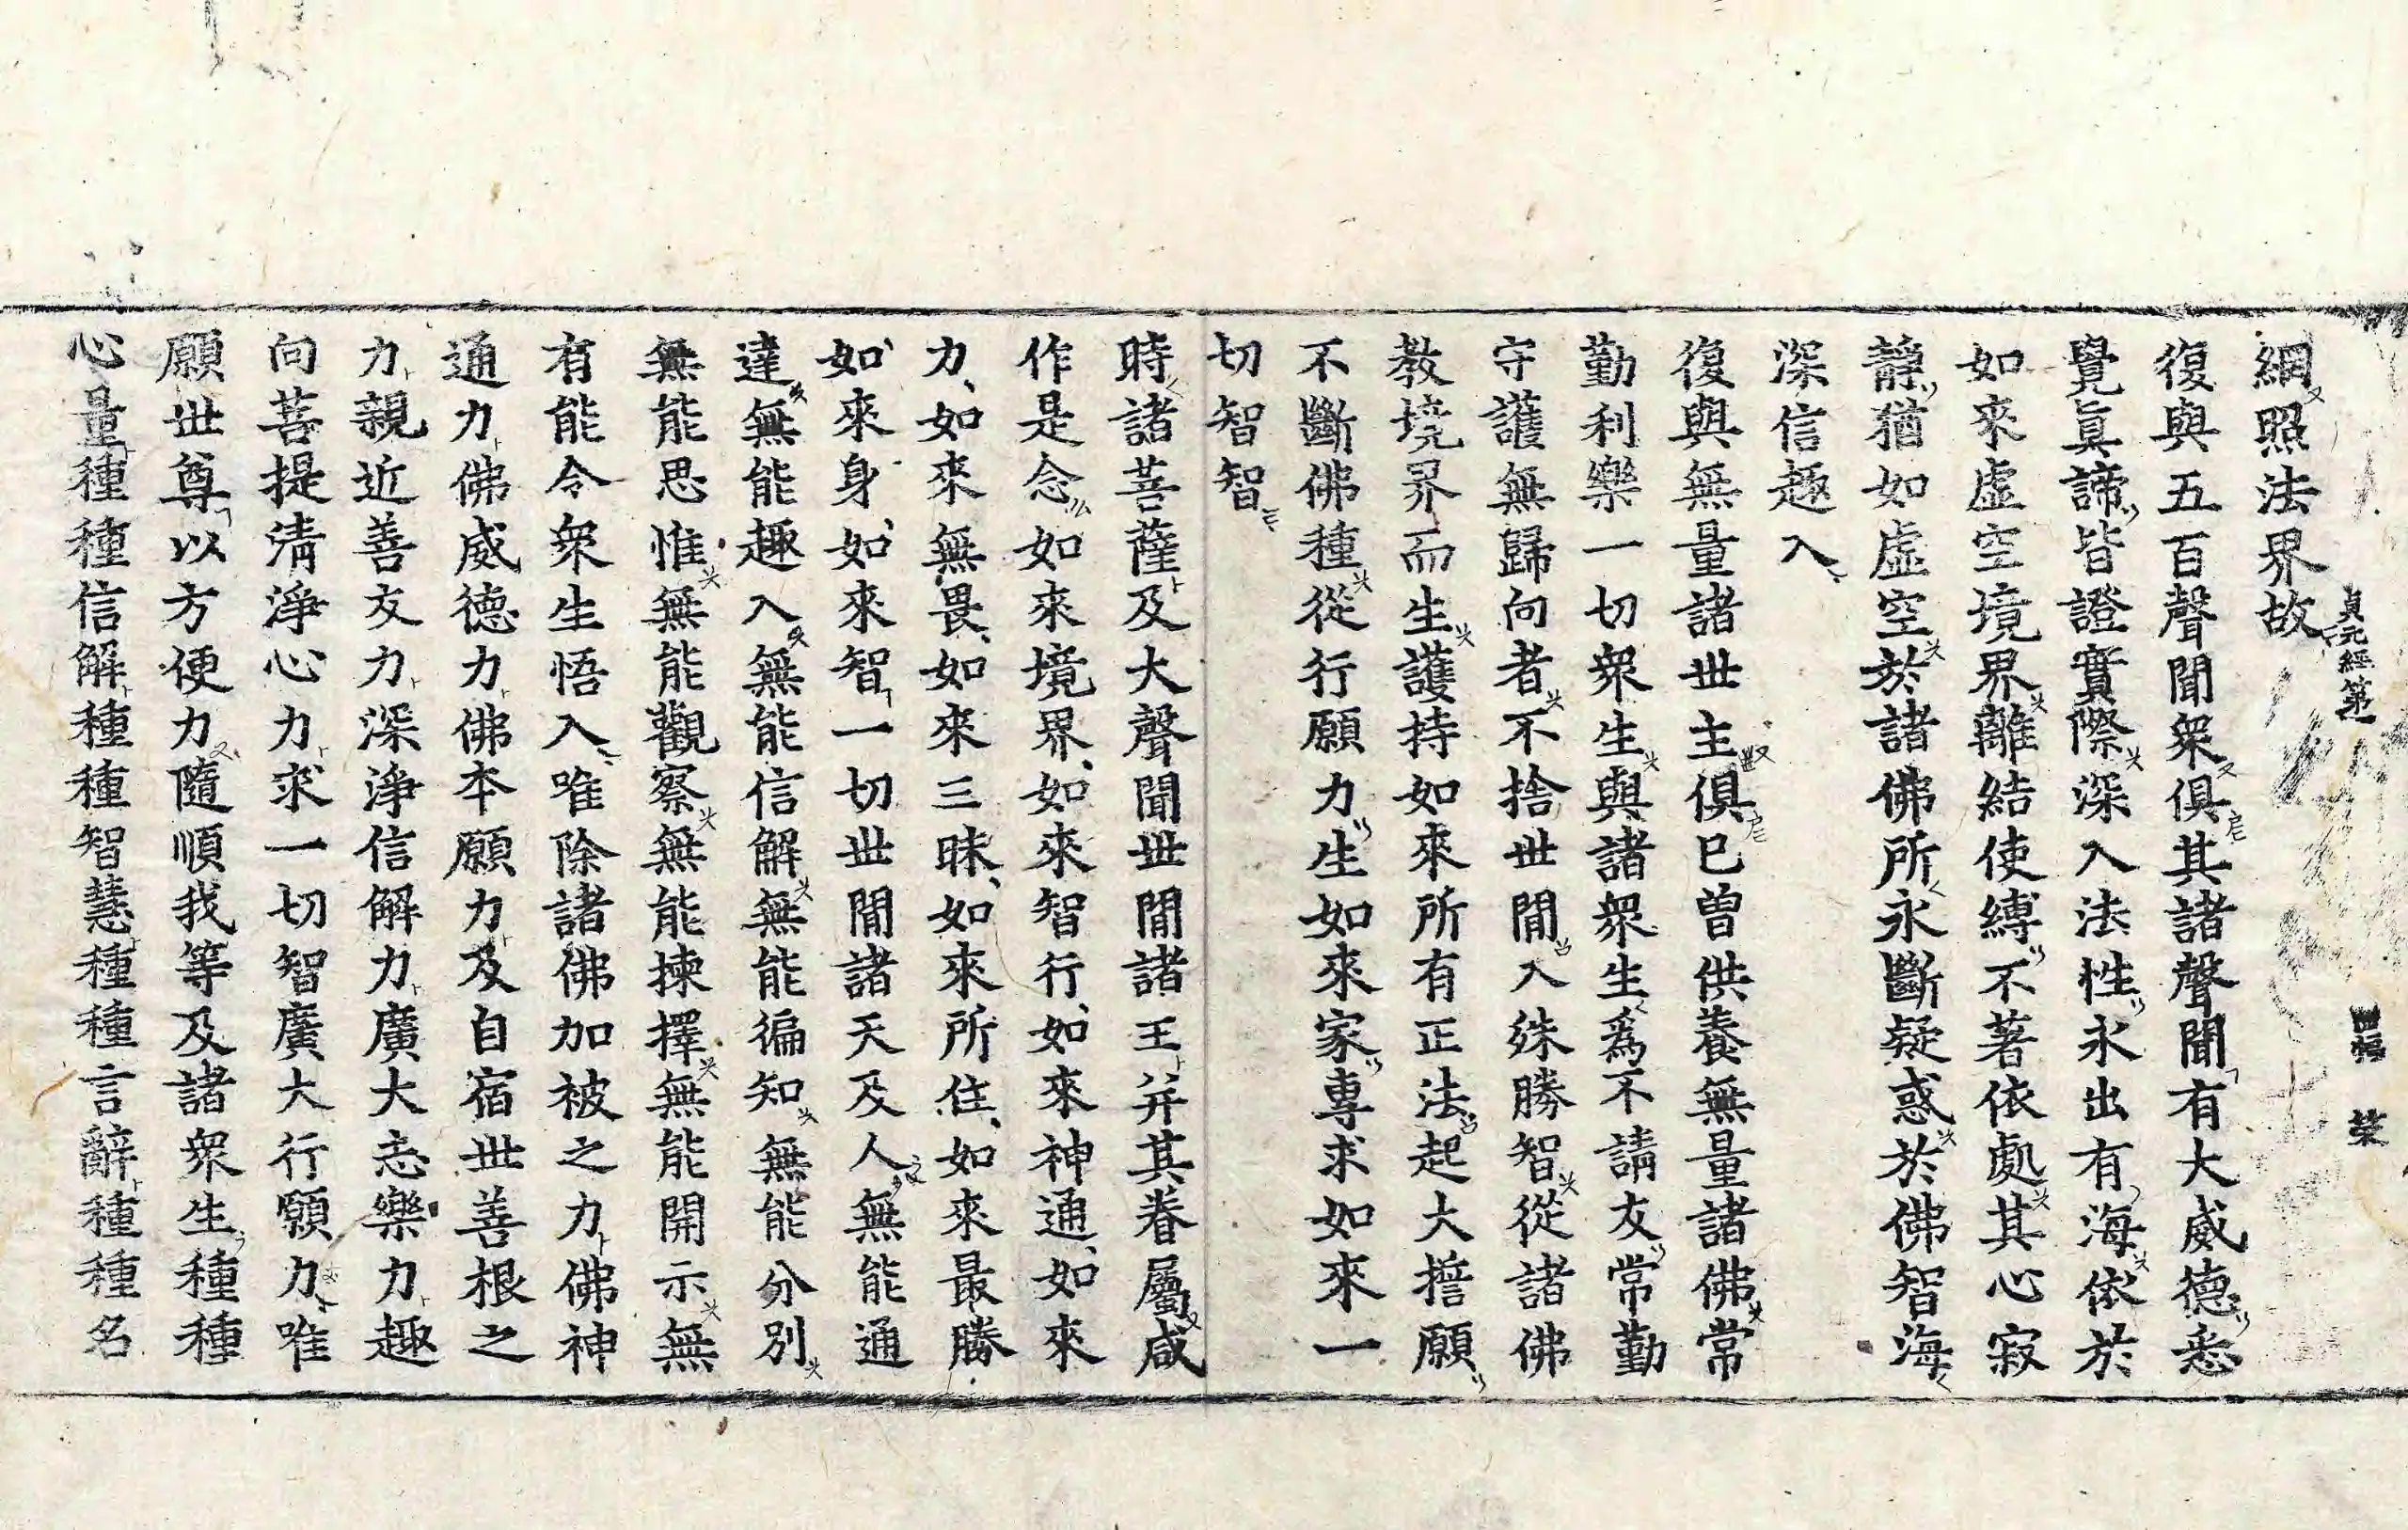 網照法界故
貞元經第一
四幅
榮
復與五百聲聞衆俱其諸聲聞有大威德悉
覺眞諦皆證實際深入法性永出有海依於
如來虛空境界離結使縛不著依處其心寂
靜猶如虛空於諸佛所永斷疑惑於佛智海
深信趣入
復與無量諸世主俱已曾供養無量諸佛常
勤利樂一切衆生與諸衆生爲不請友常勤
守護無歸向者不捨世間入殊勝智從諸佛
教境界而生護持如來所有正法起大擔願
不斷佛種從行願力生如來家專求如來一
切智智
時諸菩薩及大聲聞世間諸王并其眷屬咸
作是念如來境界如來智行如來神通如來
力如來無畏如來三昧如來所住如來最勝
如來身如來智一切世間諸天及人無能通
達無能趣入無能信解無能徧知無能分別
無能思惟無能觀察無能揀擇無能開示無
有能令衆生悟入唯除諸佛加被之力佛神
通力佛威德力佛本願力及自宿世善根之
力親近善友力深淨信解力廣大志樂力趣
向菩提淸淨心力求一切智廣大行願力唯
願世尊以方便力隨順我等及諸衆生種種
心量種種信解種種智慧種種言辭種種名